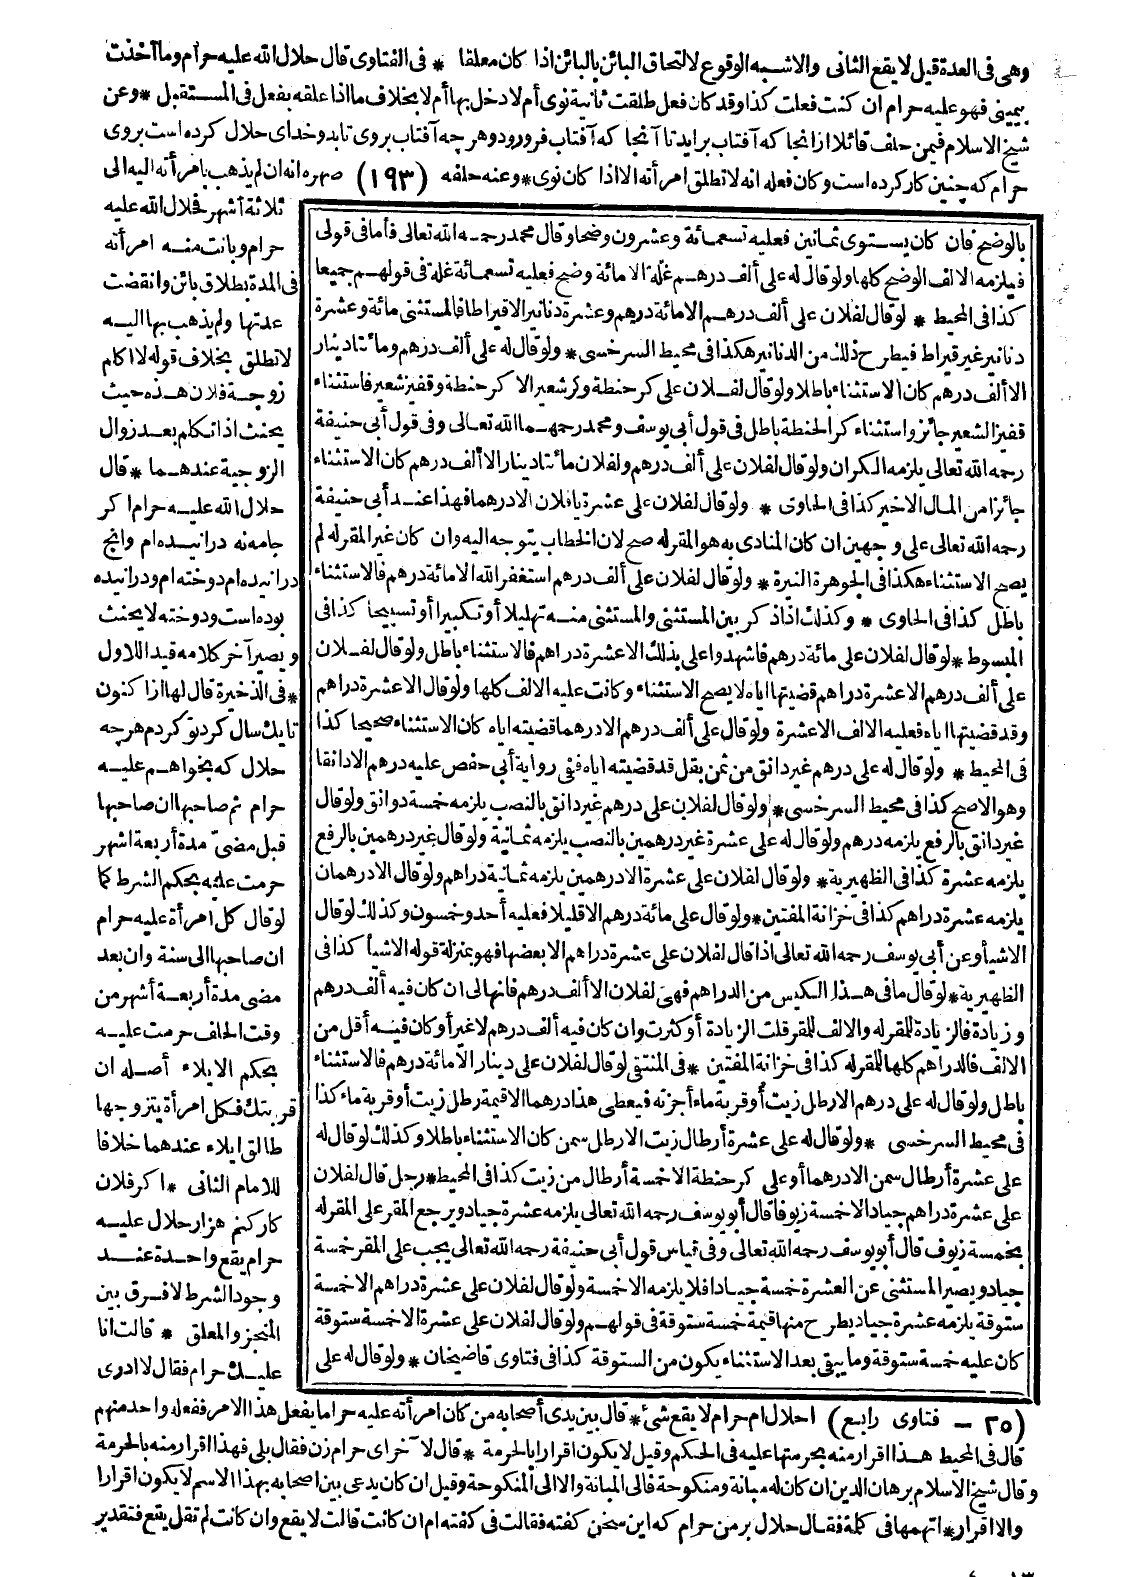 وهى فى العدة قيل لا يقع الثانى والاشبه الوقوع لالتحاق البائن بالبائن اذا كان معلقا * فى الفتاوى قال حلال الله عليه حرام وما آخذت
بيمينى فهو عليه حرام ان كنت فعلت كذا وقد كان فعل طلقت ثانية نوى أم لا دخل بها أم لا بخلاف ما اذا علقه بفعل فى المستقبل * وعن
شيخ الاسلام فيمن حلف قائلا ازانجا كه آفتاب برايد تا آنجا كه آفتاب فرورود وهر چه آفتاب بروى تابد وخداى حلال كرده است بروى
حرام كه چنين كار كرده است وكان فعله انه لا تطلق امرأته الا اذا كان نوى * وعنه حلفه (١٩٣) صهره انه ان لم يذهب بامرأته اليه الى
ثلاثة أشهر فحلال الله عليه
حرام وبانت منه امرأته
فى المدة بطلاق بائن وانقضت
عدتها ولم يذهب بها اليه
لا تطلق بخلاف قوله لا اكلم
زوجة فلان هذه حيث
يحنث اذا تكلم بعد زوال
الزوجية عندهما * قال
حلال الله عليه حرام اكر
جامه نه درانيده ام وانچ
درانيده ام دوخته ام ودرانيده
بوده است ودوخته لا يحنث
ويصير آخر كلامه قيد اللاول
* فى الذخيرة قال لها ازا كنون
تايك سال كرد تو كردم هر چه
حلال كه بخواهم عليه
حرام ثم صاحبها ان صاحبها
قبل مضىّ مدة أربعة اشهر
حرمت عليه بحكم الشرط كما
لو قال كل امرأة عليه حرام
ان صاحبها الى سنة وان بعد
مضى مدة أربعة أشهر من
وقت الحلف حرمت عليه
بحكم الايلاء أصله ان
قربتك فكل امرأة يتزوجها
طالق ايلاء عندهما خلافا
للامام الثانى * اكر فلان
كار كنم هزار حلال عليه
حرام يقع واحدة عند
وجود الشرط لا فرق بين
المنجز والمعلق * قالت انا
عليك حرام فقال لا ادرى
بالوضح فان كان يستوى ثمانين فعليه تسعمائة وعشرون وضحا وقال محمد رحمه الله تعالى فأما فى قولى
فيلزمه الالف الوضح كلها ولو قال له على ألف درهم غلة الا مائة وضح فعليه تسعمائة غلة فى قولهم جميعا
كذا فى المحيط * لو قال لفلان على ألف درهم الا مائة درهم وعشرة دنانير الا قيراطا فالمستثنى مائة وعشرة
دنانير غير قيراط فيطرح ذلك من الدنانير هكذا فى محيط السرخسى * ولو قال له على ألف درهم ومائتا دينار
الا ألف درهم كان الاستثناء باطلا ولو قال لفلان على كر حنطة وكر شعير الا كر حنطة وقفيز شعير فاستثناء
قفيز الشعير جائز واستثناء كر الحنطة باطل فى قول أبى يوسف ومحمد رحمهما الله تعالى وفى قول أبى حنيفة
رحمه الله تعالى يلزمه الكران ولو قال لفلان على ألف درهم ولفلان مائتا دينار الا ألف درهم كان الاستثناء
جائزا من المال الاخير كذا فى الحاوى * ولو قال لفلان على عشرة يا فلان الا درهما فهذا عند أبى حنيفة
رحمه الله تعالى على وجهين ان كان المنادى به هو المقرله صح لان الخطاب يتوجه اليه وان كان غير المقرله لم
يصح الاستثناء هكذا فى الجوهرة النيرة * ولو قال لفلان على ألف درهم استغفر الله الا مائة درهم فالاستثناء
باطل كذا فى الحاوى * وكذلك اذا ذكر بين المستثنى والمستثنى منه تهليلا أو تكبيرا أو تسبيحا كذا فى
المبسوط * لو قال لفلان على مائة درهم فاشهدوا على بذلك الا عشرة دراهم فالاستثناء باطل ولو قال لفلان
على ألف درهم الا عشرة دراهم قضيتها اياه لا يصح الاستثناء وكانت عليه الالف كلها ولو قال الا عشرة دراهم
وقد قضيتها اياه فعليه الالف الا عشرة ولو قال على ألف درهم الا درهما قضيته اياه كان الاستثناء صحيحا كذا
فى المحيط * ولو قال له على درهم غير دانق من ثمن بقل قد قضيته اياه ففى رواية أبى حفص عليه درهم الا دانقا
وهو الاصح كذا فى محيط السرخسى * ولو قال لفلان على درهم غير دانق بالنصب يلزمه خمسة دوانق ولو قال
غير دانق بالرفع يلزمه درهم ولو قال له على عشرة غير درهمين بالنصب يلزمه ثمانية ولو قال غير درهمين بالرفع
يلزمه عشرة كذا فى الظهيرية * ولو قال لفلان على عشرة الا درهمين يلزمه ثمانية دراهم ولو قال الا درهمان
يلزمه عشرة دراهم كذا فى خزانة المفتين * ولو قال على مائة درهم الا قليلا فعليه أحد وخمسون وكذلك لو قال
الا شيأ وعن أبى يوسف رحمه الله تعالى اذا قال لفلان على عشرة دراهم الا بعضها فهو بمنزلة قوله الا شيأ كذا فى
الظهيرية * لو قال ما فى هذا الكيس من الدراهم فهى لفلان الا ألف درهم فانها لى ان كان فيه ألف درهم
وزيادة فالزيادة للمقرله والالف للمقر قلت الزيادة أو كثرت وان كان فيه ألف درهم لا غير أو كان فيه أقل من
الالف فالدراهم كلها للمقرله كذا فى خزانة المفتين * فى المنتقى لو قال لفلان على دينار الا مائة درهم فالاستثناء
باطل ولو قال له على درهم الا رطل زيت أو قربة ماء أجزته فيعطى هذا درهما الا قيمة رطل زيت أو قربة ماء كذا
فى محيط السرخسى * ولو قال له على عشرة أرطال زيت الا رطل سمن كان الاستثناء باطلا وكذلك لو قال له
على عشرة أرطال سمن الا درهما أو على كر حنطة الا خمسة أرطال من زيت كذا فى المحيط * رجل قال لفلان
على عشرة دراهم جياد الا خمسة زيوفا قال أبو يوسف رحمه الله تعالى يلزمه عشرة جياد ويرجع المقر على المقرله
بخمسة زيوف قال أبو يوسف رحمه الله تعالى وفى قياس قول أبى حنيفة رحمه الله تعالى يجب على المقر خمسة
جياد ويصير المستثنى عن العشرة خمسة جيادا فلا يلزمه الا خمسة ولو قال لفلان على عشرة دراهم الا خمسة
ستوقة يلزمه عشرة جياد يطرح منها قيمة خمسة ستوقة فى قولهم ولو قال لفلان على عشرة الا خمسة ستوقة
كان عليه خمسة ستوقة وما يبقى بعد الاستثناء يكون من الستوقة كذا فى فتاوى قاضيخان * ولو قال له على
(٢٥ - فتاوى رابع) احلال ام حرام لا يقع شئ * قال بين يدى أصحابه من كان امرأته عليه حراما يفعل هذا الامر ففعله واحد منهم
قال فى المحيط هذا اقرار منه بحرمتها عليه فى الحكم وقيل لا يكون اقرارا بالحرمة * قال لآخر اى حرام زن فقال بلى فهذا اقرار منه بالحرمة
وقال شيخ الاسلام برهان الدين ان كان له مبانة ومنكوحة فالى المبانة والا الى المنكوحة وقيل ان كان يدعى بين اصحابه بهذا الاسم لا يكون اقرارا
والا اقرار * اتهمها فى كلمة فقال حلال بر من حرام كه اين سخن كفته فقالت فى كفته ام ان كانت قالت لا يقع وان كانت لم تقل يقع فتقدير